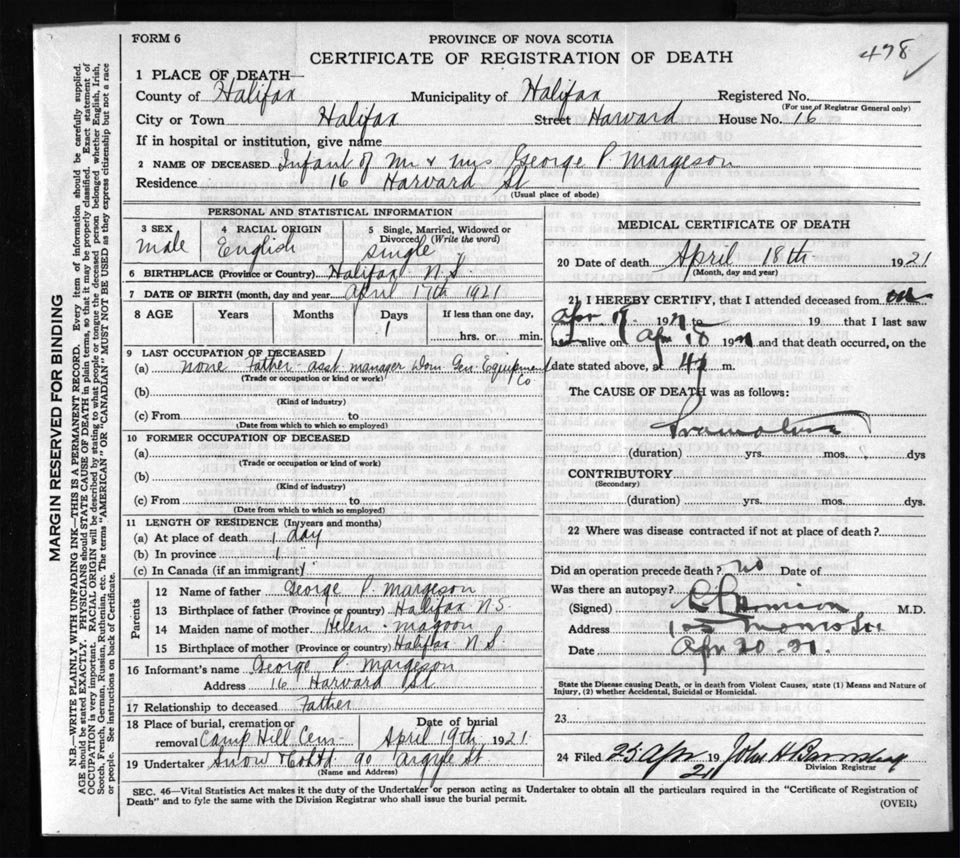 FORM 6
PROVINCE OF NOVA SCOTIA
CERTIFICATE OF REGISTRATION OF DEATH
478
1 PLACE OF DEATH—
County of Halifax Municipality of Halifax Registered No.
(For use of Registrar General only)
City or Town Halifax Street Harvard House No. 16
If in hospital or institution, give name
2 NAME OF DECEASED Infant of Mr & Mrs George P. Margeson
Residence 16 Harvard St
(Usual place of abode)
PERSONAL AND STATISTICAL INFORMATION
3 SEX 4 RACIAL ORIGIN 5 Single, Married, Widowed or Divorced (Write the word)
male English single
6 BIRTHPLACE (Province or Country) Halifax N.S.
7 DATE OF BIRTH (month, day and year) April 17th 1921
8 AGE Years Months Days If less than one day,
1 hrs. or min.
9 LAST OCCUPATION OF DECEASED
(a) none Father - asst manager Dom Gen Equipment Co
(Trade or occupation or kind or work)
(b)
(Kind of industry)
(c) From to
(Date from which to which so employed)
10 FORMER OCCUPATION OF DECEASED
(a)
(Trade or occupation or kind of work)
(b)
(Kind of industry)
(c) From to
(Date from which to which so employed)
11 LENGTH OF RESIDENCE (In years and months)
(a) At place of death 1 day
(b) In province 1 "
(c) In Canada (if an immigrant)
Parents
12 Name of father George P. Margeson
13 Birthplace of father (Province or country) Halifax N S
14 Maiden name of mother Helen - Magoon
15 Birthplace of mother (Province or country) Halifax N S.
16 Informant's name George P. Margeson
Address 16 Harvard St
17 Relationship to deceased Father
18 Place of burial, cremation or removal Camp Hill Cem- Date of burial April 19th 1921
19 Undertaker Snow & Co Ltd 90 Argyle St
(Name and Address)
MEDICAL CERTIFICATE OF DEATH
20 Date of death April 18th 1921
(Month, day and year)
21 I HEREBY CERTIFY, that I attended deceased from
Apr. 192 to 19 that I last saw
alive on Apr 18 19 and that death occurred, on the
date stated above, at m.
The CAUSE OF DEATH was as follows:
(duration) yrs. mos. dys
CONTRIBUTORY
(Secondary)
(duration) yrs. mos. dys.
22 Where was disease contracted if not at place of death?
Did an operation precede death? no Date of
Was there an autopsy?
(Signed) M.D.
Address
Date Apr 20 - 21.
State the Disease causing Death, or in death from Violent Causes, state (1) Means and Nature of Injury, (2) whether Accidental, Suicidal or Homicidal.
23
24 Filed 25 Apr 19 21 John H
Division Registrar
SEC. 46—Vital Statistics Act makes it the duty of the Undertaker or person acting as Undertaker to obtain all the particulars required in the "Certificate of Registration of
Death" and to fyle the same with the Division Registrar who shall issue the burial permit.
(OVER)
MARGIN RESERVED FOR BINDING
N.B.—WRITE PLAINLY WITH UNFADING INK—THIS IS A PERMANENT RECORD. Every item of information should be carefully supplied.
AGE should be stated EXACTLY. PHYSICIANS should STATE CAUSE OF DEATH in plain terms, so that it may be properly classified. Exact statement of
OCCUPATION is very important. RACIAL ORIGIN will be described by stating to what people or tongue the deceased person belonged whether English, Irish,
Scotch, French, German, Russian, Ruthenian, etc. The terms "AMERICAN" OR "CANADIAN" MUST NOT BE USED as they express citizenship but not a race
or people. See instructions on back of Certificate.